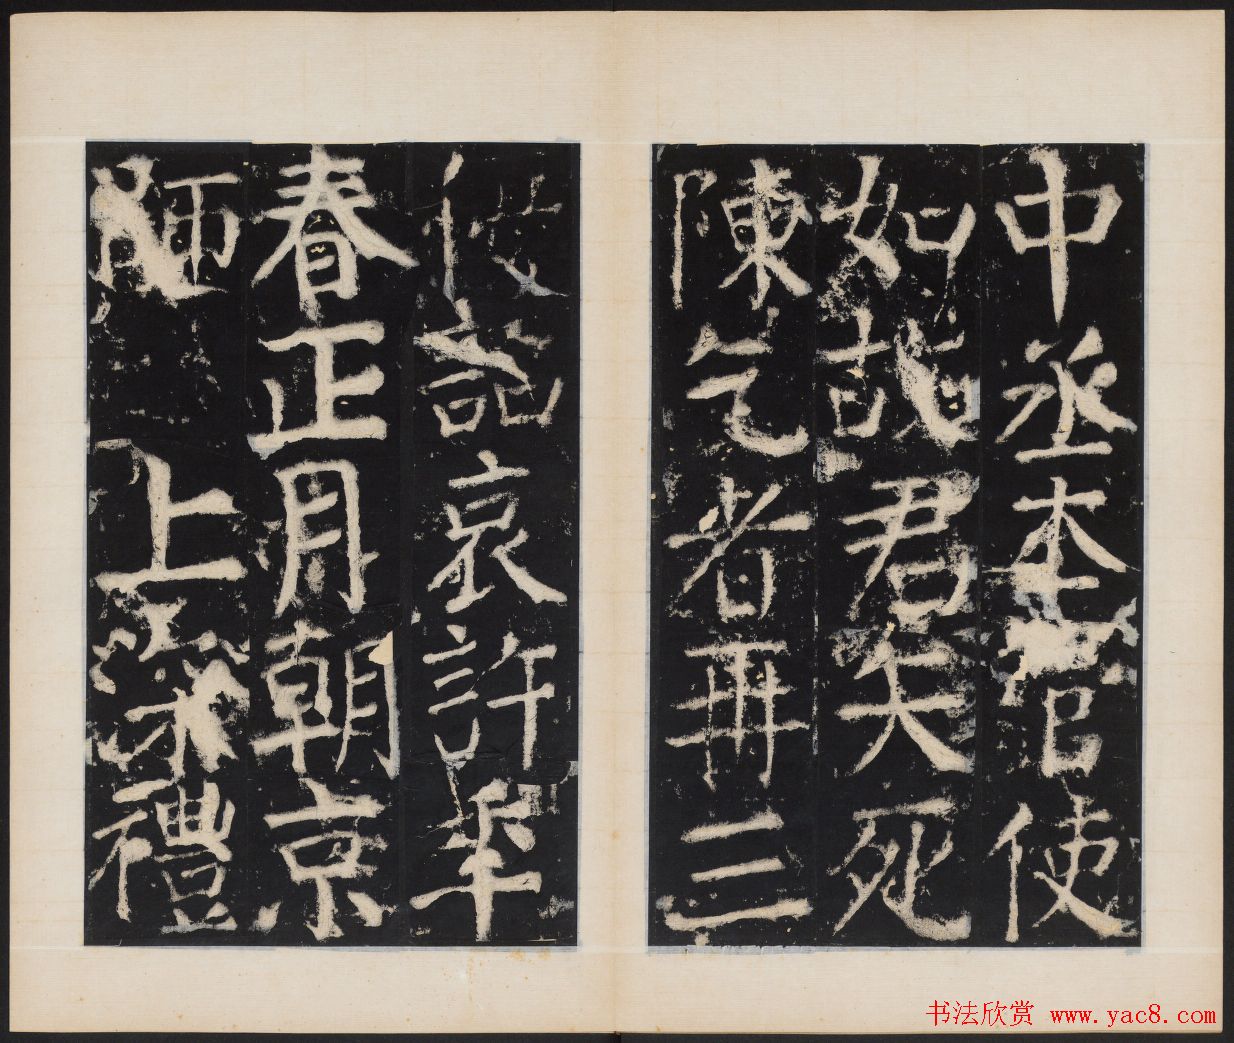 中丞本管使
如故君矢死
陳乞者再三
詔哀許年
春正月朝京
師 上深禮
书法欣赏 www.yac8.com